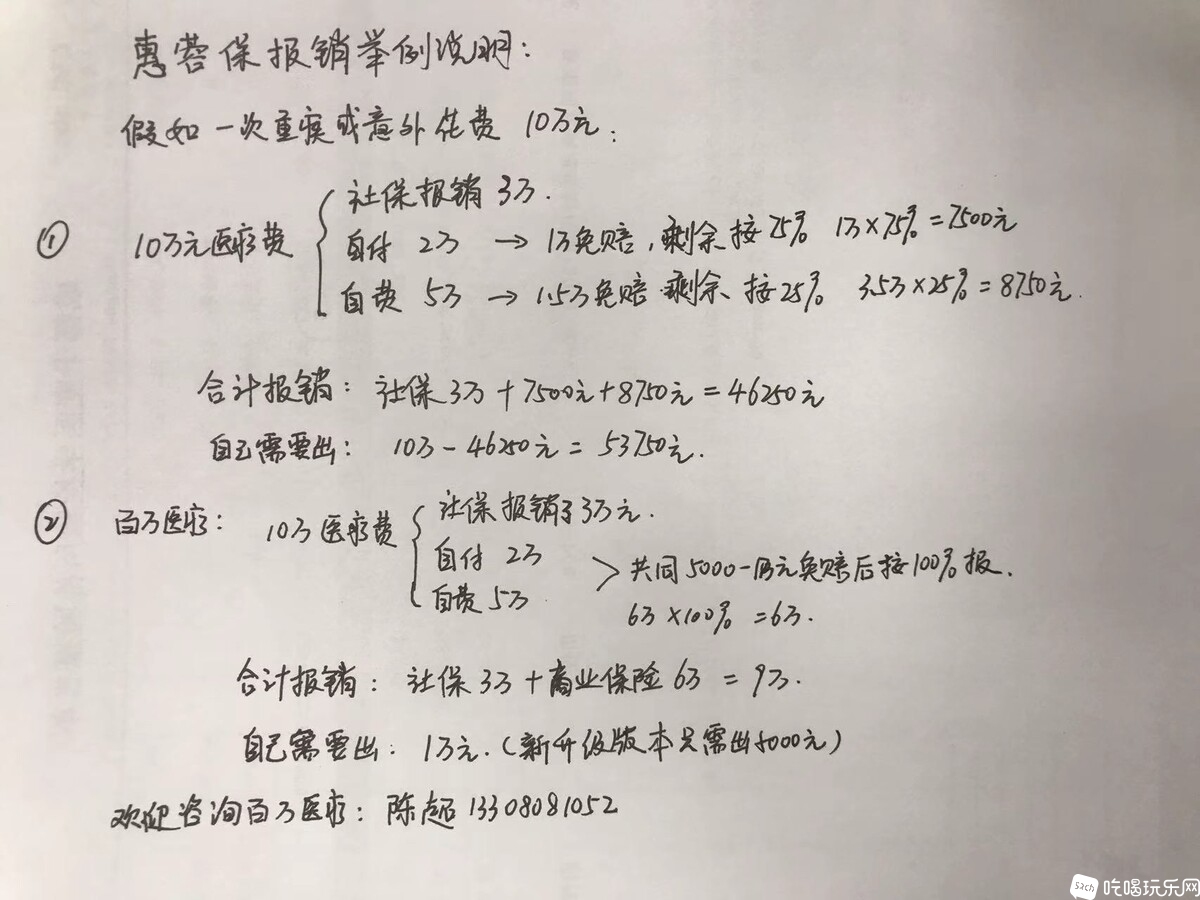 惠蓉保报销举例说明:
假如一次重疾或意外花费 10万元:
① 10万元医疗费
社保报销 3万.
自付 2万 → 1万免赔,剩余按75% 1万×75%=7500元
自费 5万 → 1.5万免赔.剩余按25% 3.5万×25%=8750元.
合计报销: 社保3万+7500元+8750元=46250元
自己需要出: 10万-46250元=53750元.
② 百万医疗: 10万医疗费
社保报销了3万元.
自付 2万
自费 5万
> 共同5000-1万元免赔后按100%报.
6万×100%=6万.
合计报销: 社保3万+商业保险6万=9万.
自己需要出: 1万元.(新升级版本只需出5000元)
欢迎咨询百万医疗: 陈超 13308081052
52ch 吃喝玩乐网